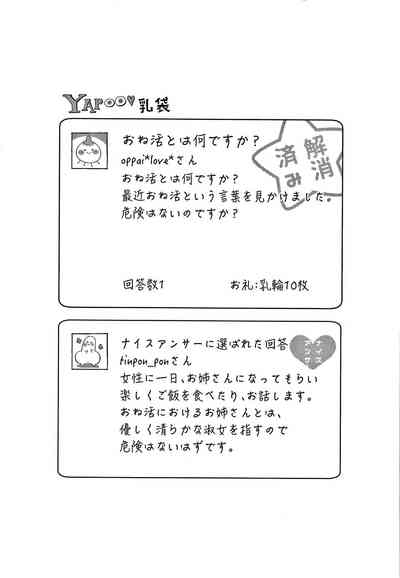 YAPOO♥乳袋
おね活とは何ですか？
oppai*love*さん
おね活とは何ですか？
最近おね活という言葉を見かけました。
危険はないのですか？
解消
済み
回答数1
お礼：乳輪10枚
ナイスアンサーに選ばれた回答
ナイス
アンサー
tinpon_ponさん
女性に一日、お姉さんになってもらい
楽しくご飯を食べたり、お話します。
おね活におけるお姉さんとは、
優しく清らかな淑女を指すので
危険はないはずです。